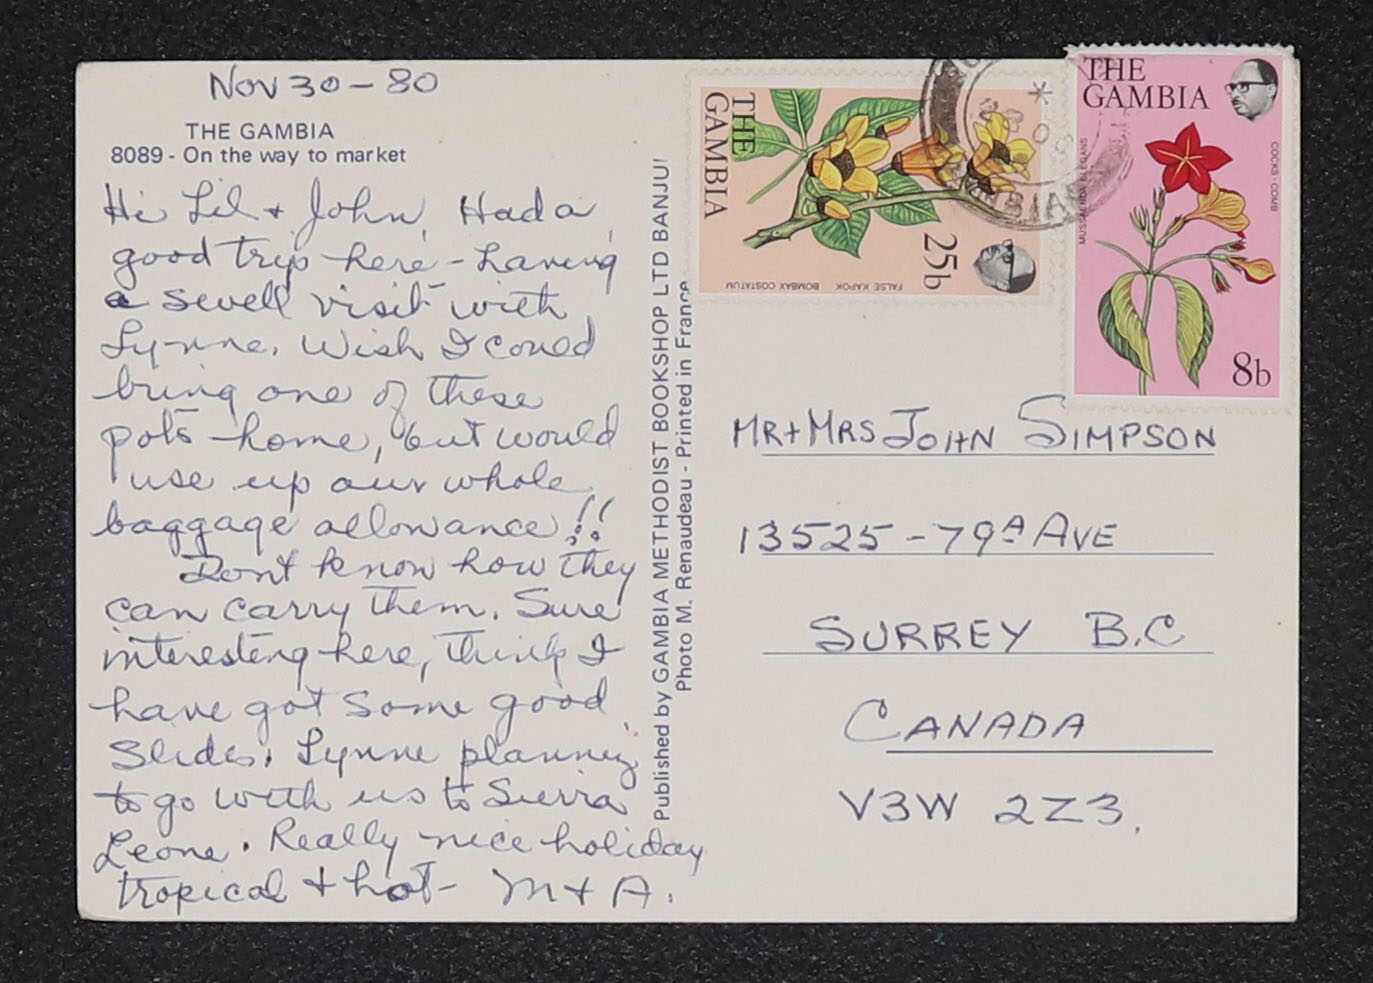 Nov 30 - 80
THE GAMBIA
8089 - On the way to market
Hi Lil + John, Had a
good trip here - having
a swell visit with
Lynne. Wish I could
bring one of these
pots home, but would
use up our whole
baggage allowance!!
Don't know how they
can carry them. Sure
interesting here, think I
have got some good
slides. Lynne planning
to go with us to Sierra
Leone. Really nice holiday
tropical + hot - M + A.
Published by GAMBIA METHODIST BOOKSHOP LTD BANJUL
Photo M. Renaudeau - Printed in France
THE
GAMBIA
25b
FALSE KAPOK BOMBAX COSTATUM
THE
GAMBIA
MUSSAENDA ELEGANS
COCKS-COMB
8b
MR + MRS JOHN SIMPSON
13525 - 79A AVE
SURREY B.C
CANADA
V3W 2Z3.